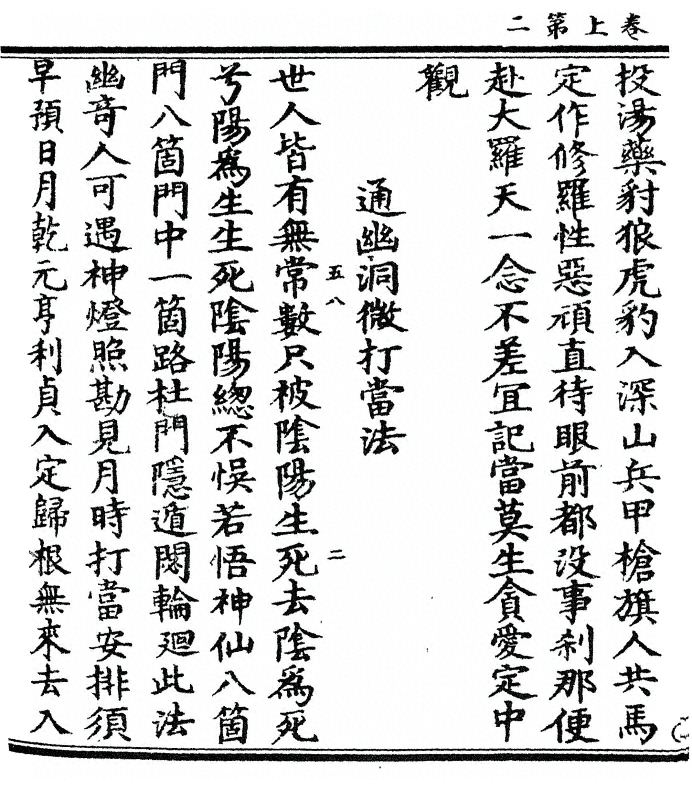 二第上卷
投湯藥豺狼虎豹入深山兵甲槍旗人共馬
定作修羅性惡頑直待眼前都没事刹那便
赴大羅天一念不差冝記當莫生貪愛定中
觀
通幽洞微打當法
五八
二
世人皆有無常數只被陰陽生死去陰爲死
兮陽爲生生死陰陽緫不悮若悟神仙八箇
門八箇門中一箇路杜門隱遁閟輪廻此法
幽竒人可遇神燈照勘見月時打當安排須
早預日月乾元亨利貞入定歸根無來去入